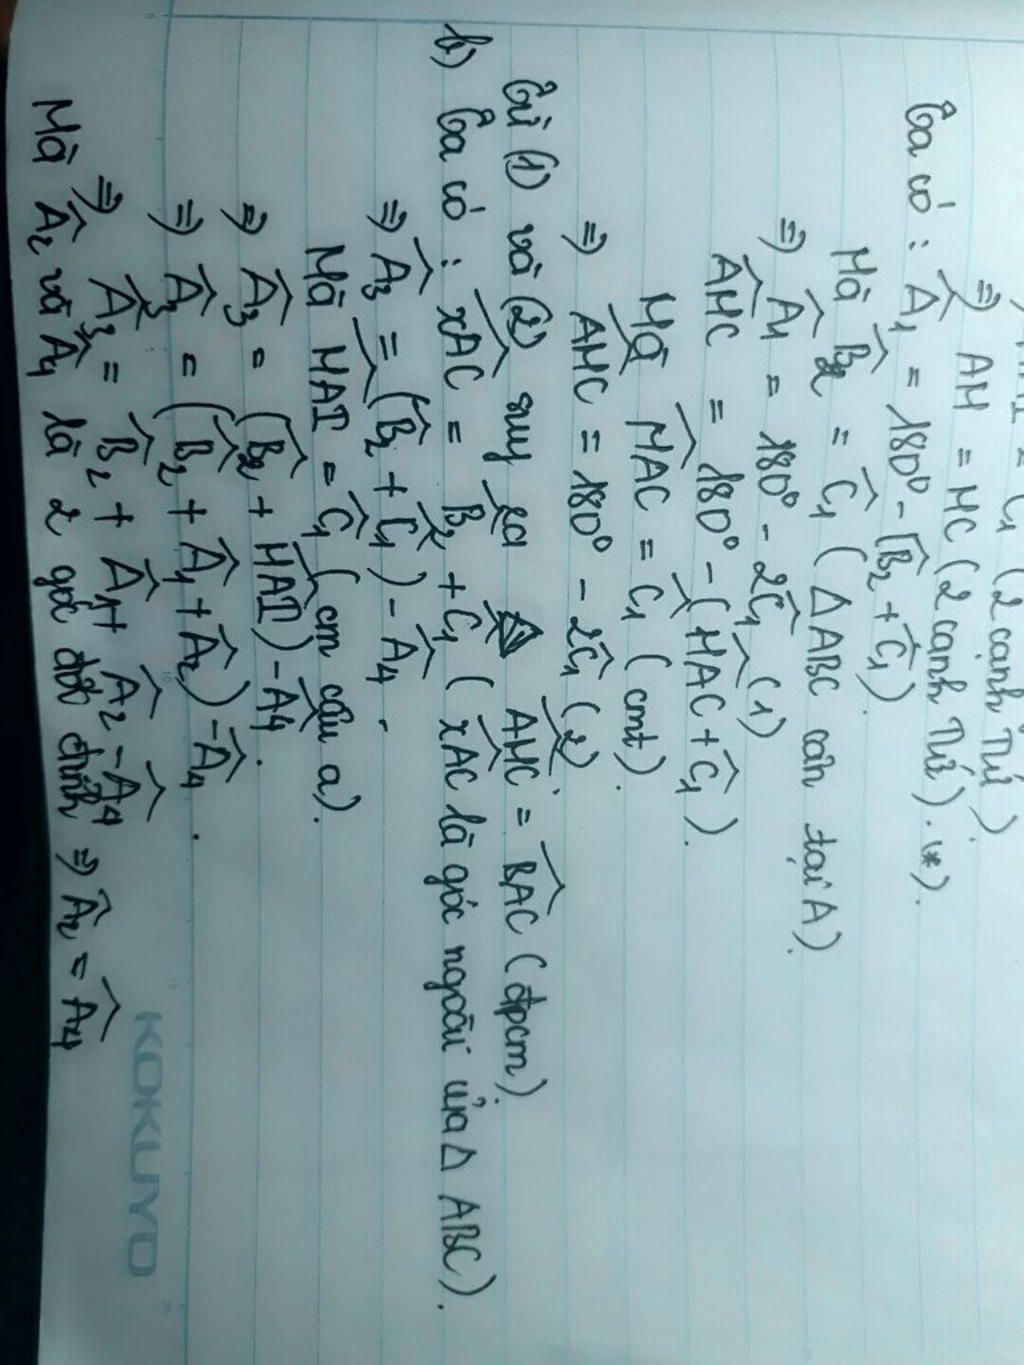 = C₁ (2 cạnh tứ)
⇒ AM = MC (2 cạnh tứ). (*).
Ta có : Â₁ = 180° - (B̂₂ + Ĉ₁)
Mà B̂₂ = Ĉ₁ ( Δ ABC cân tại A).
⇒ Â₁ = 180° - 2Ĉ₁ (1)
AMC = 180° - (MAC + Ĉ₁ ).
Mà MAC = Ĉ₁ ( cmt).
⇒ AMC = 180° - 2Ĉ₁ (2)
Từ (1) và (2) suy ra AMC = BAC (đpcm).
b) Ta có : xAC = B̂₂ + Ĉ₁ ( xAC là góc ngoài của Δ ABC).
⇒ Â₃ = (B̂₂ + Ĉ₁ ) - Â₄ .
Mà MAI = Ĉ₁ ( cm câu a).
⇒ Â₃ = (B̂₂ + MAI) - Â₄.
⇒ Â₃ = (B̂₂ + Â₁ + Â₂) - Â₄ .
⇒ Â₃ = B̂₂ + Â₁ + Â₂ - Â₄
Mà Â₂ và Â₄ là 2 góc đối đỉnh ⇒ Â₂ = Â₄
KOKUYO